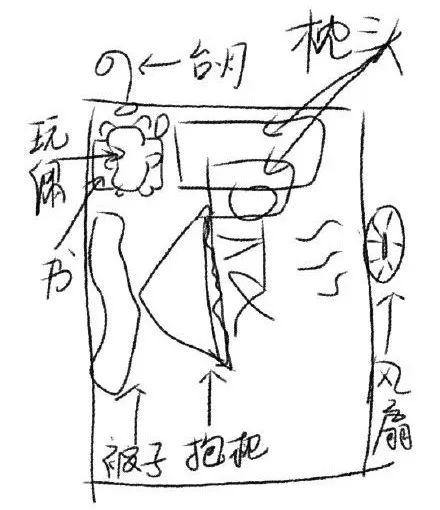 枕头
台月
玩偶
书
风扇
被子
抱枕